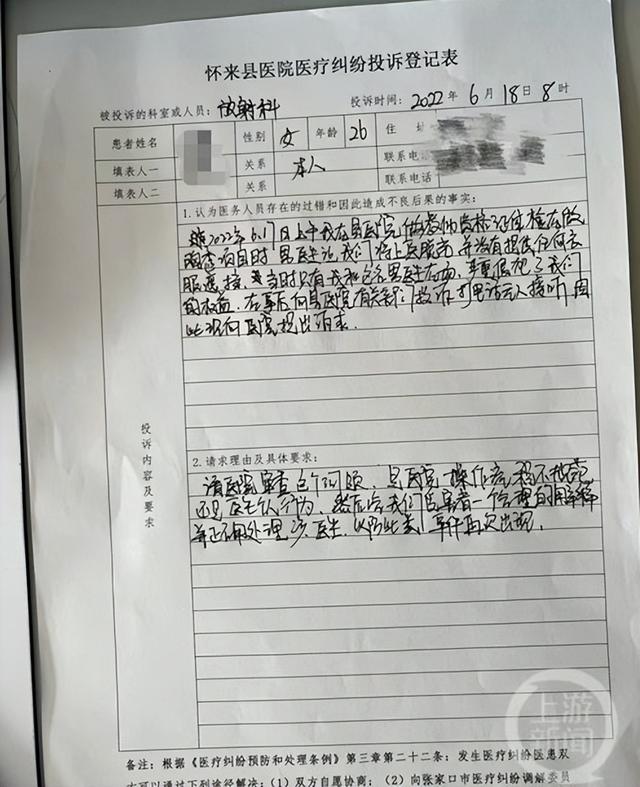 怀来县医院医疗纠纷投诉登记表
被投诉的科室或人员：放射科 投诉时间：2022年6月18日8时
患者姓名 性别 女 年龄 26 住 址
填表人一 关系 本人 联系电话
填表人二 关系 联系电话
投诉内容及要求
1.认为医务人员存在的过错和因此造成不良后果的事实：
2022年6.17日上午我在县医院做教师资格证体检在做
胸透项目时 男医生让我们 上衣脱 并没有提供任何衣
服遮挡，当时只有我和 名男医生在场，严重侵犯了我们
的权益。在事后向县医院有关部门投诉 打电话无人接听，因
此现向医院提出
2.请求理由及具体要求：
请医院审查这个问题，是医院操作 不规范
还是医生个人行为，然后给我们 患者一个合理的解释
并正确处理涉 医生，以防此类事件再次出现。
备注：根据《医疗纠纷预防和处理条例》第三章第二十二条：发生医疗纠纷医患双
方可以通过下列途径解决：（1）双方自愿协商；（2）向张家口市医疗纠纷调解委员
上游新闻